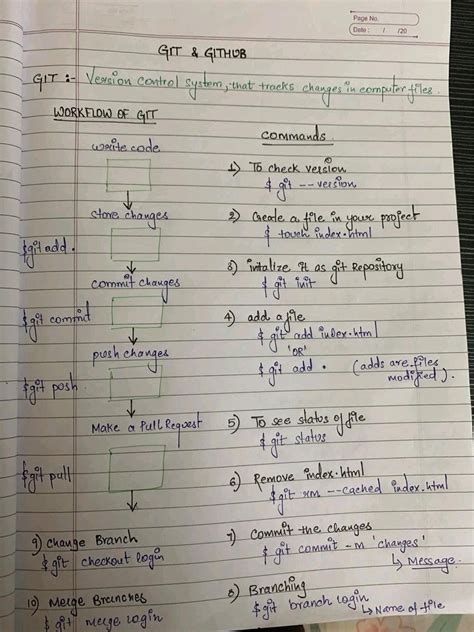 Page No.
Date: / /20
GIT & GITHUB
GIT :- Version control system, that tracks changes in computer files.
WORKFLOW OF GIT
write code
store changes
$git add .
commit changes
$git commid
push changes
$git posh
Make a Pull Request
$git pull
Commands
1) To check version
$ git --version
2) Create a file in your project
$ touch index.html
3) initalize it as git Repository
$ git init
4) add a file
$ git add index.html
'OR'
$ git add . (adds are files
modified).
5) To see status of file
$ git status
6) Remove index.html
$git rm --cached index.html
7) Commit the changes
$ git commit -m 'changes'
↳ Message.
8) Branching
$git branch login
↳ Name of file
9) Change Branch
$ git checkout login
10) Merge Branches
$ git merge login